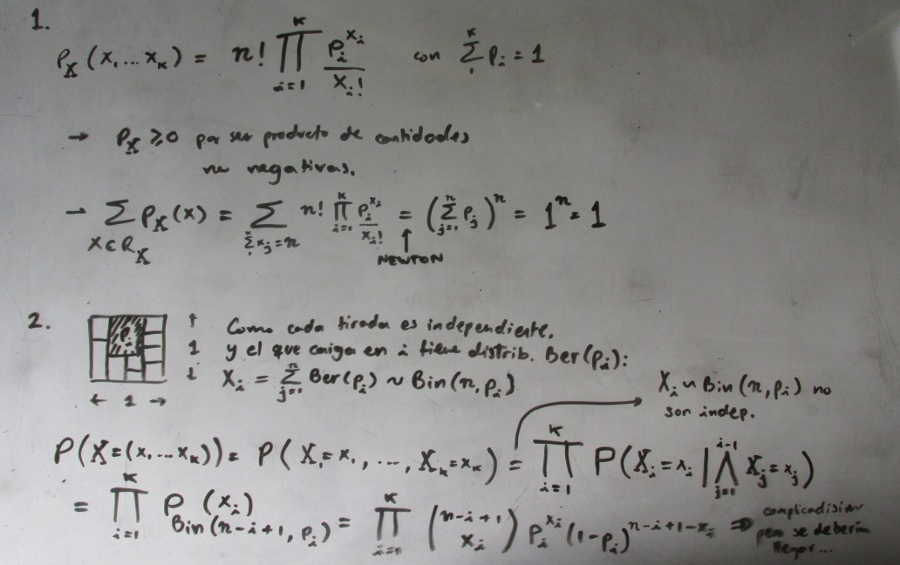 1.
P_X (x₁ ... x_k) = n! ∏_{i=1}^{k} p_i^{x_i} / x_i! con Σ_1^k p_i = 1
→ P_X ≥ 0 por ser producto de cantidades
no negativas.
→ Σ_{x∈R_X} P_X(x) = Σ_{Σ_1^k x_j = n} n! ∏_{i=1}^{k} p_i^{x_i} / x_i! = (Σ_{j=1}^{n} p_j)^n = 1^n = 1
↑
NEWTON
2.
P_i
↑ 1 ↓
← 1 →
Como cada tirada es independiente,
y el que caiga en i tiene distrib. Ber(p_i):
X_i = Σ_{j=1}^{n} Ber(p_i) ~ Bin(n, p_i)
X_i ~ Bin(n, p_i) no
son indep.
P(X = (x₁ ... x_k)) = P(X₁ = x₁, ..., X_k = x_k) = ∏_{i=1}^{k} P(X_i = x_i | ⋀_{j=1}^{i-1} X_j = x_j)
= ∏_{i=1}^{k} P_{Bin(n-i+1, p_i)}(x_i) = ∏_{i=1}^{k} (n-i+1 x_i) p_i^{x_i} (1-p_i)^{n-i+1-x_i} ⇒
pero se debería
llegar...